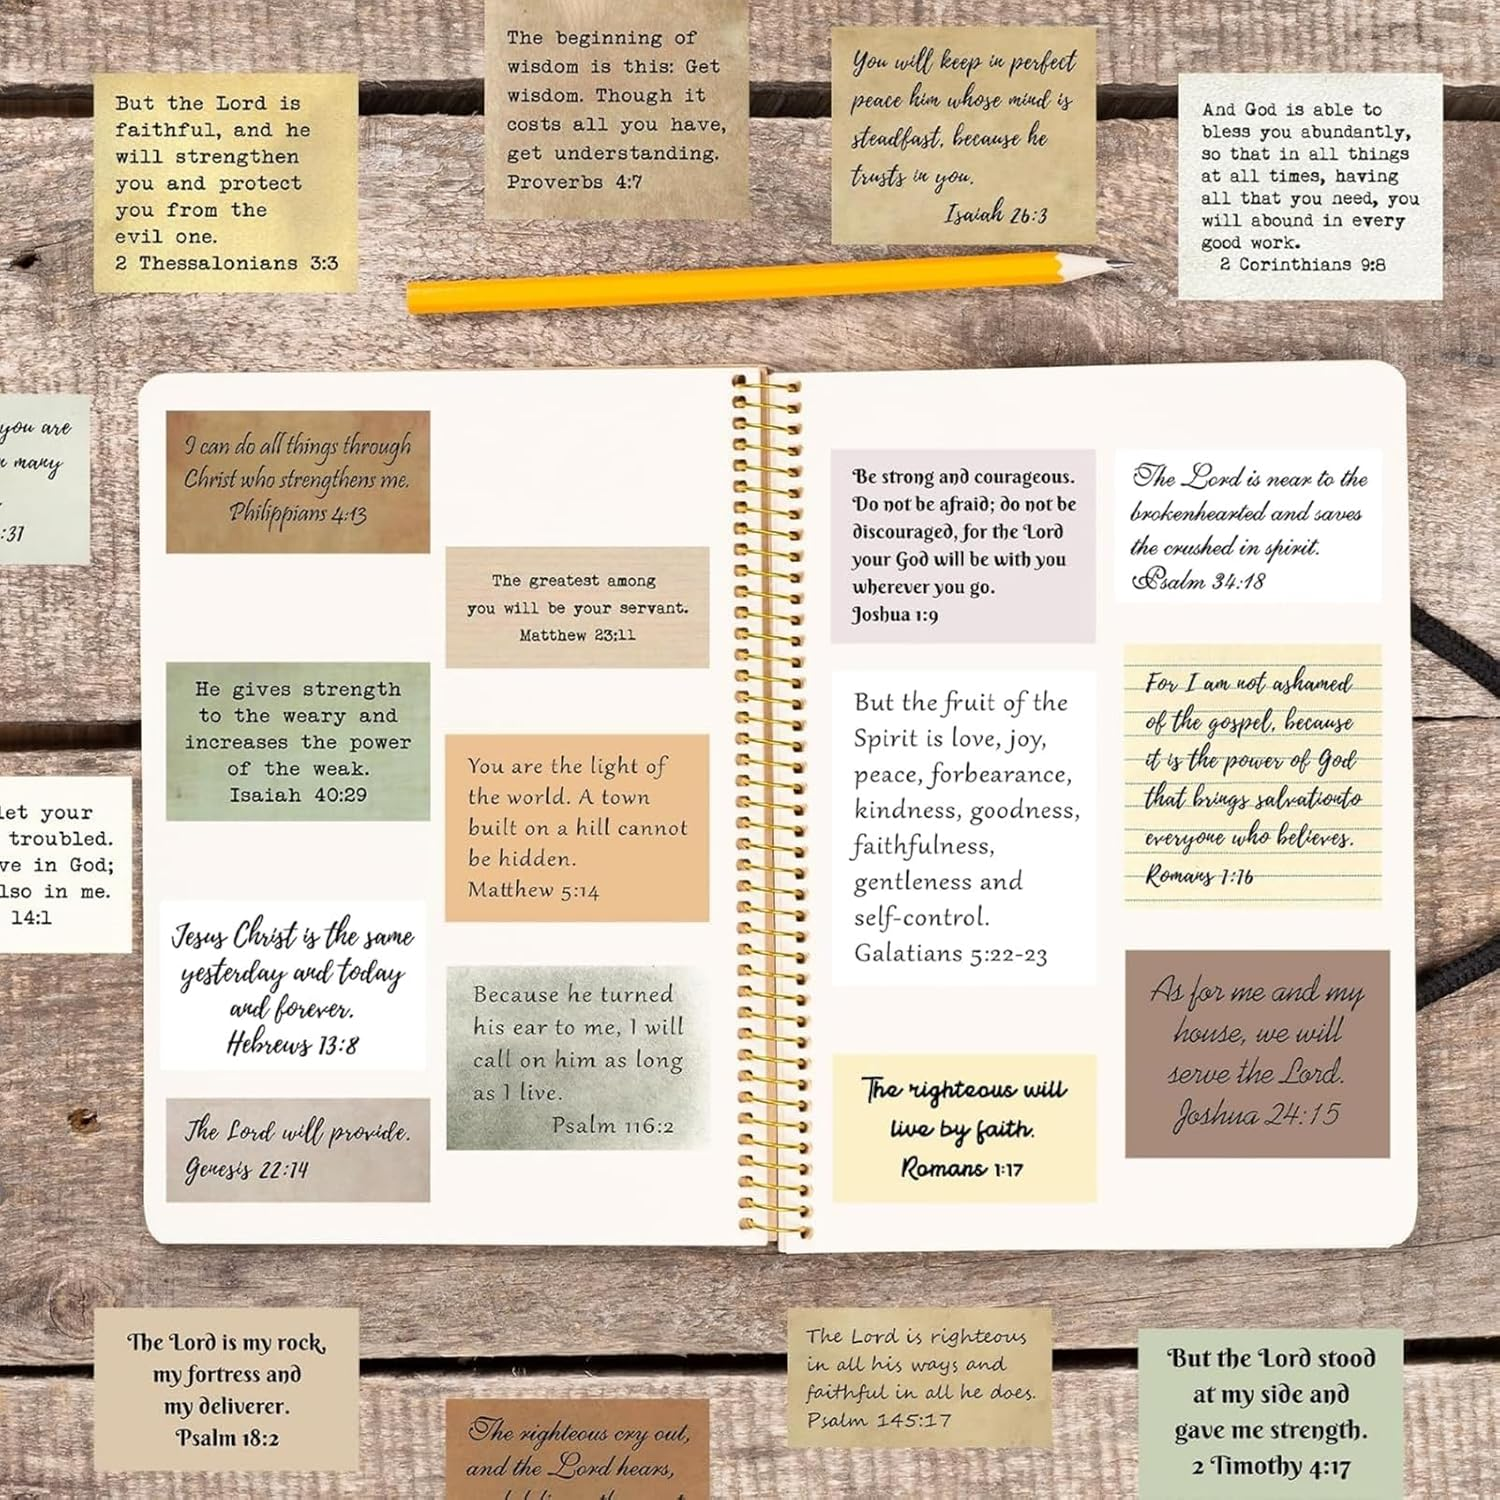 But the Lord is
faithful, and he
will strengthen
you and protect
you from the
evil one.
2 Thessalonians 3:3
The beginning of
wisdom is this: Get
wisdom. Though it
costs all you have,
get understanding.
Proverbs 4:7
You will keep in perfect
peace him whose mind is
steadfast, because he
trusts in you.
Isaiah 26:3
And God is able to
bless you abundantly,
so that in all things
at all times, having
all that you need, you
will abound in every
good work.
2 Corinthians 9:8
you are
many
:31
let your
troubled.
ve in God;
lso in me.
14:1
I can do all things through
Christ who strengthens me.
Philippians 4:13
He gives strength
to the weary and
increases the power
of the weak.
Isaiah 40:29
Jesus Christ is the same
yesterday and today
and forever.
Hebrews 13:8
The Lord will provide.
Genesis 22:14
The greatest among
you will be your servant.
Matthew 23:11
You are the light of
the world. A town
built on a hill cannot
be hidden.
Matthew 5:14
Because he turned
his ear to me, I will
call on him as long
as I live.
Psalm 116:2
Be strong and courageous.
Do not be afraid; do not be
discouraged, for the Lord
your God will be with you
wherever you go.
Joshua 1:9
But the fruit of the
Spirit is love, joy,
peace, forbearance,
kindness, goodness,
faithfulness,
gentleness and
self-control.
Galatians 5:22-23
The righteous will
live by faith.
Romans 1:17
The Lord is near to the
brokenhearted and saves
the crushed in spirit.
Psalm 34:18
For I am not ashamed
of the gospel, because
it is the power of God
that brings salvationto
everyone who believes.
Romans 1:16
As for me and my
house, we will
serve the Lord.
Joshua 24:15
The Lord is my rock,
my fortress and
my deliverer.
Psalm 18:2
The righteous cry out,
and the Lord hears,
The Lord is righteous
in all his ways and
faithful in all he does.
Psalm 145:17
But the Lord stood
at my side and
gave me strength.
2 Timothy 4:17